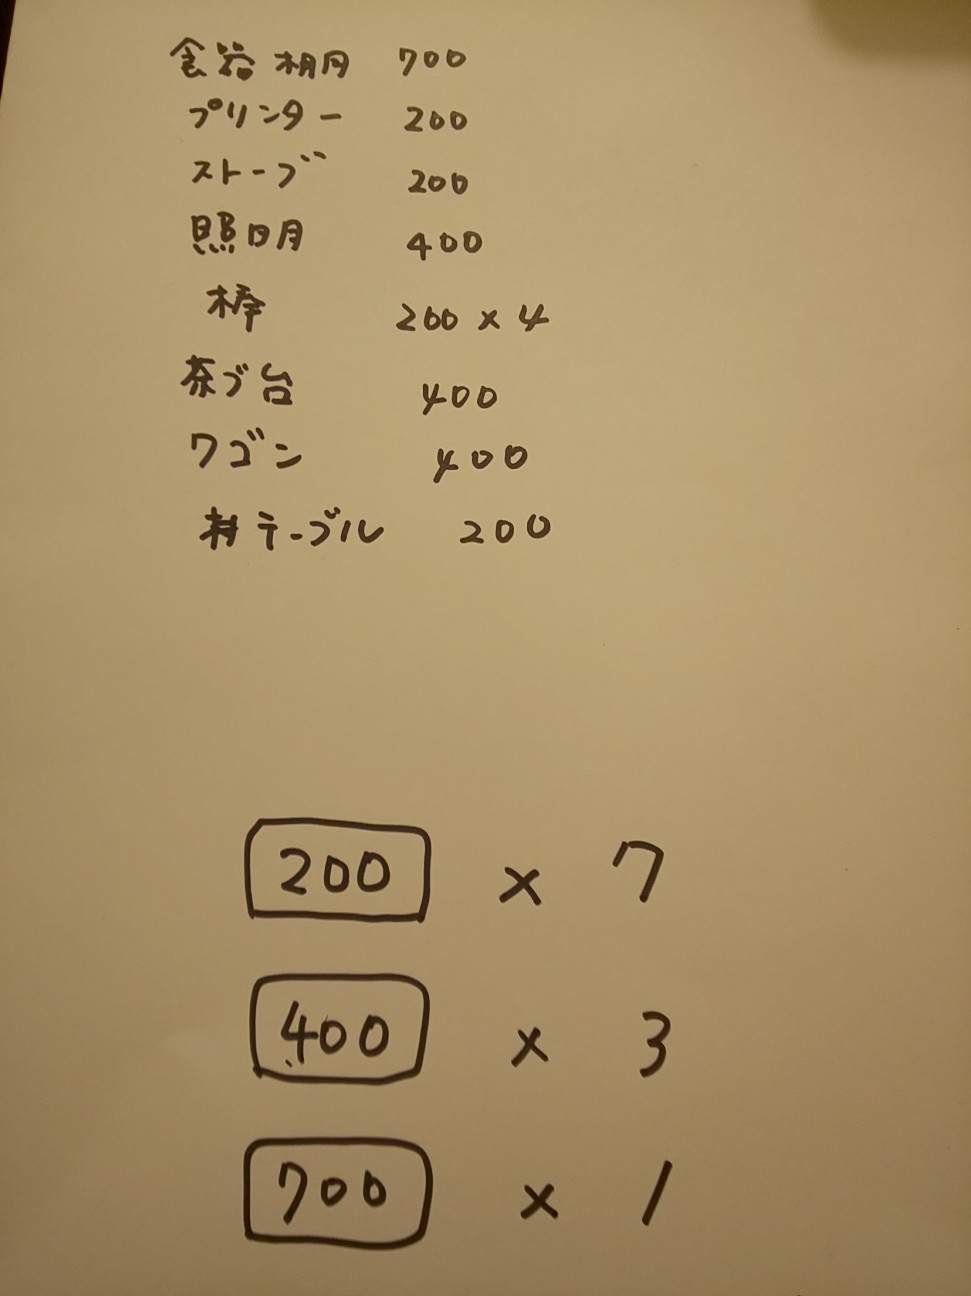 食器棚 700
プリンター 200
ストーブ 200
照明 400
棒 200 × 4
茶ブ台 400
ワゴン 400
テーブル 200
200 × 7
400 × 3
700 × 1